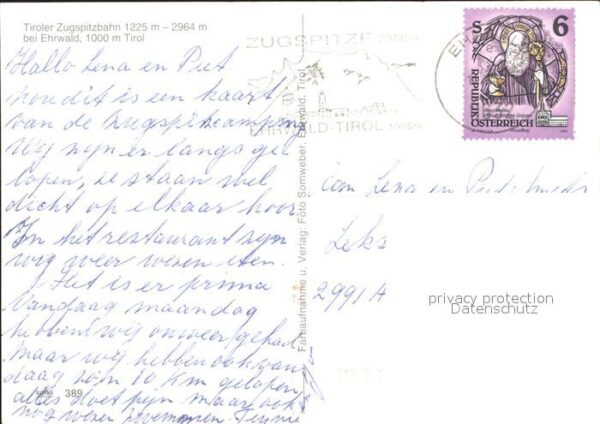 Tiroler Zugspitzbahn 1225 m – 2964 m
bei Ehrwald, 1000 m Tirol
Hallo Lena en Piet
nou dit is een kaart
van de Zugspitzcamping
Wij zijn er langs ge
lopen, ze staan wel
dicht op elkaar hoor
In het restaurant zijn
wij weer wezen eten.
Het is er prima
Vandaag maandag
hebben wij onweer gehad
maar wij hebben ook van
daag zo'n 10 km gelopen
alles doet pijn maar ook
nog wezen zwemmen.
389
Farbaufnahme u. Verlag: Foto Somweber, Ehrwald, Tirol
ZUGSPITZE
EHRWALD-TIROL
S 6
REPUBLIK
ÖSTERREICH
Lena en Piet
Leks
2991 A
privacy protection
Datenschutz